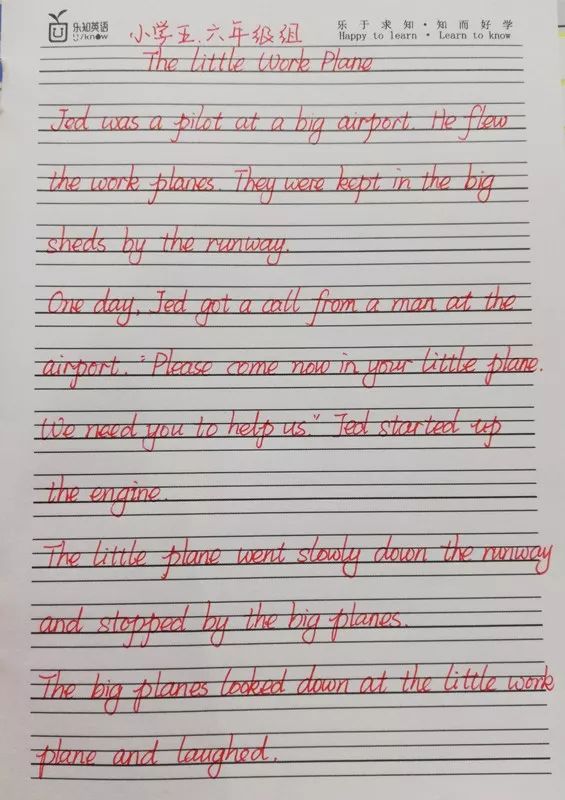 乐知英语
U/know
小学五.六年级组
乐于求知·知而好学
Happy to learn · Learn to know
The little Work Plane
Jed was a pilot at a big airport. He flew
the work planes. They were kept in the big
sheds by the runway.
One day, Jed got a call from a man at the
airport. "Please come now in your little plane.
We need you to help us." Jed started up
the engine.
The little plane went slowly down the runway
and stopped by the big planes.
The big planes looked down at the little work
plane and laughed.